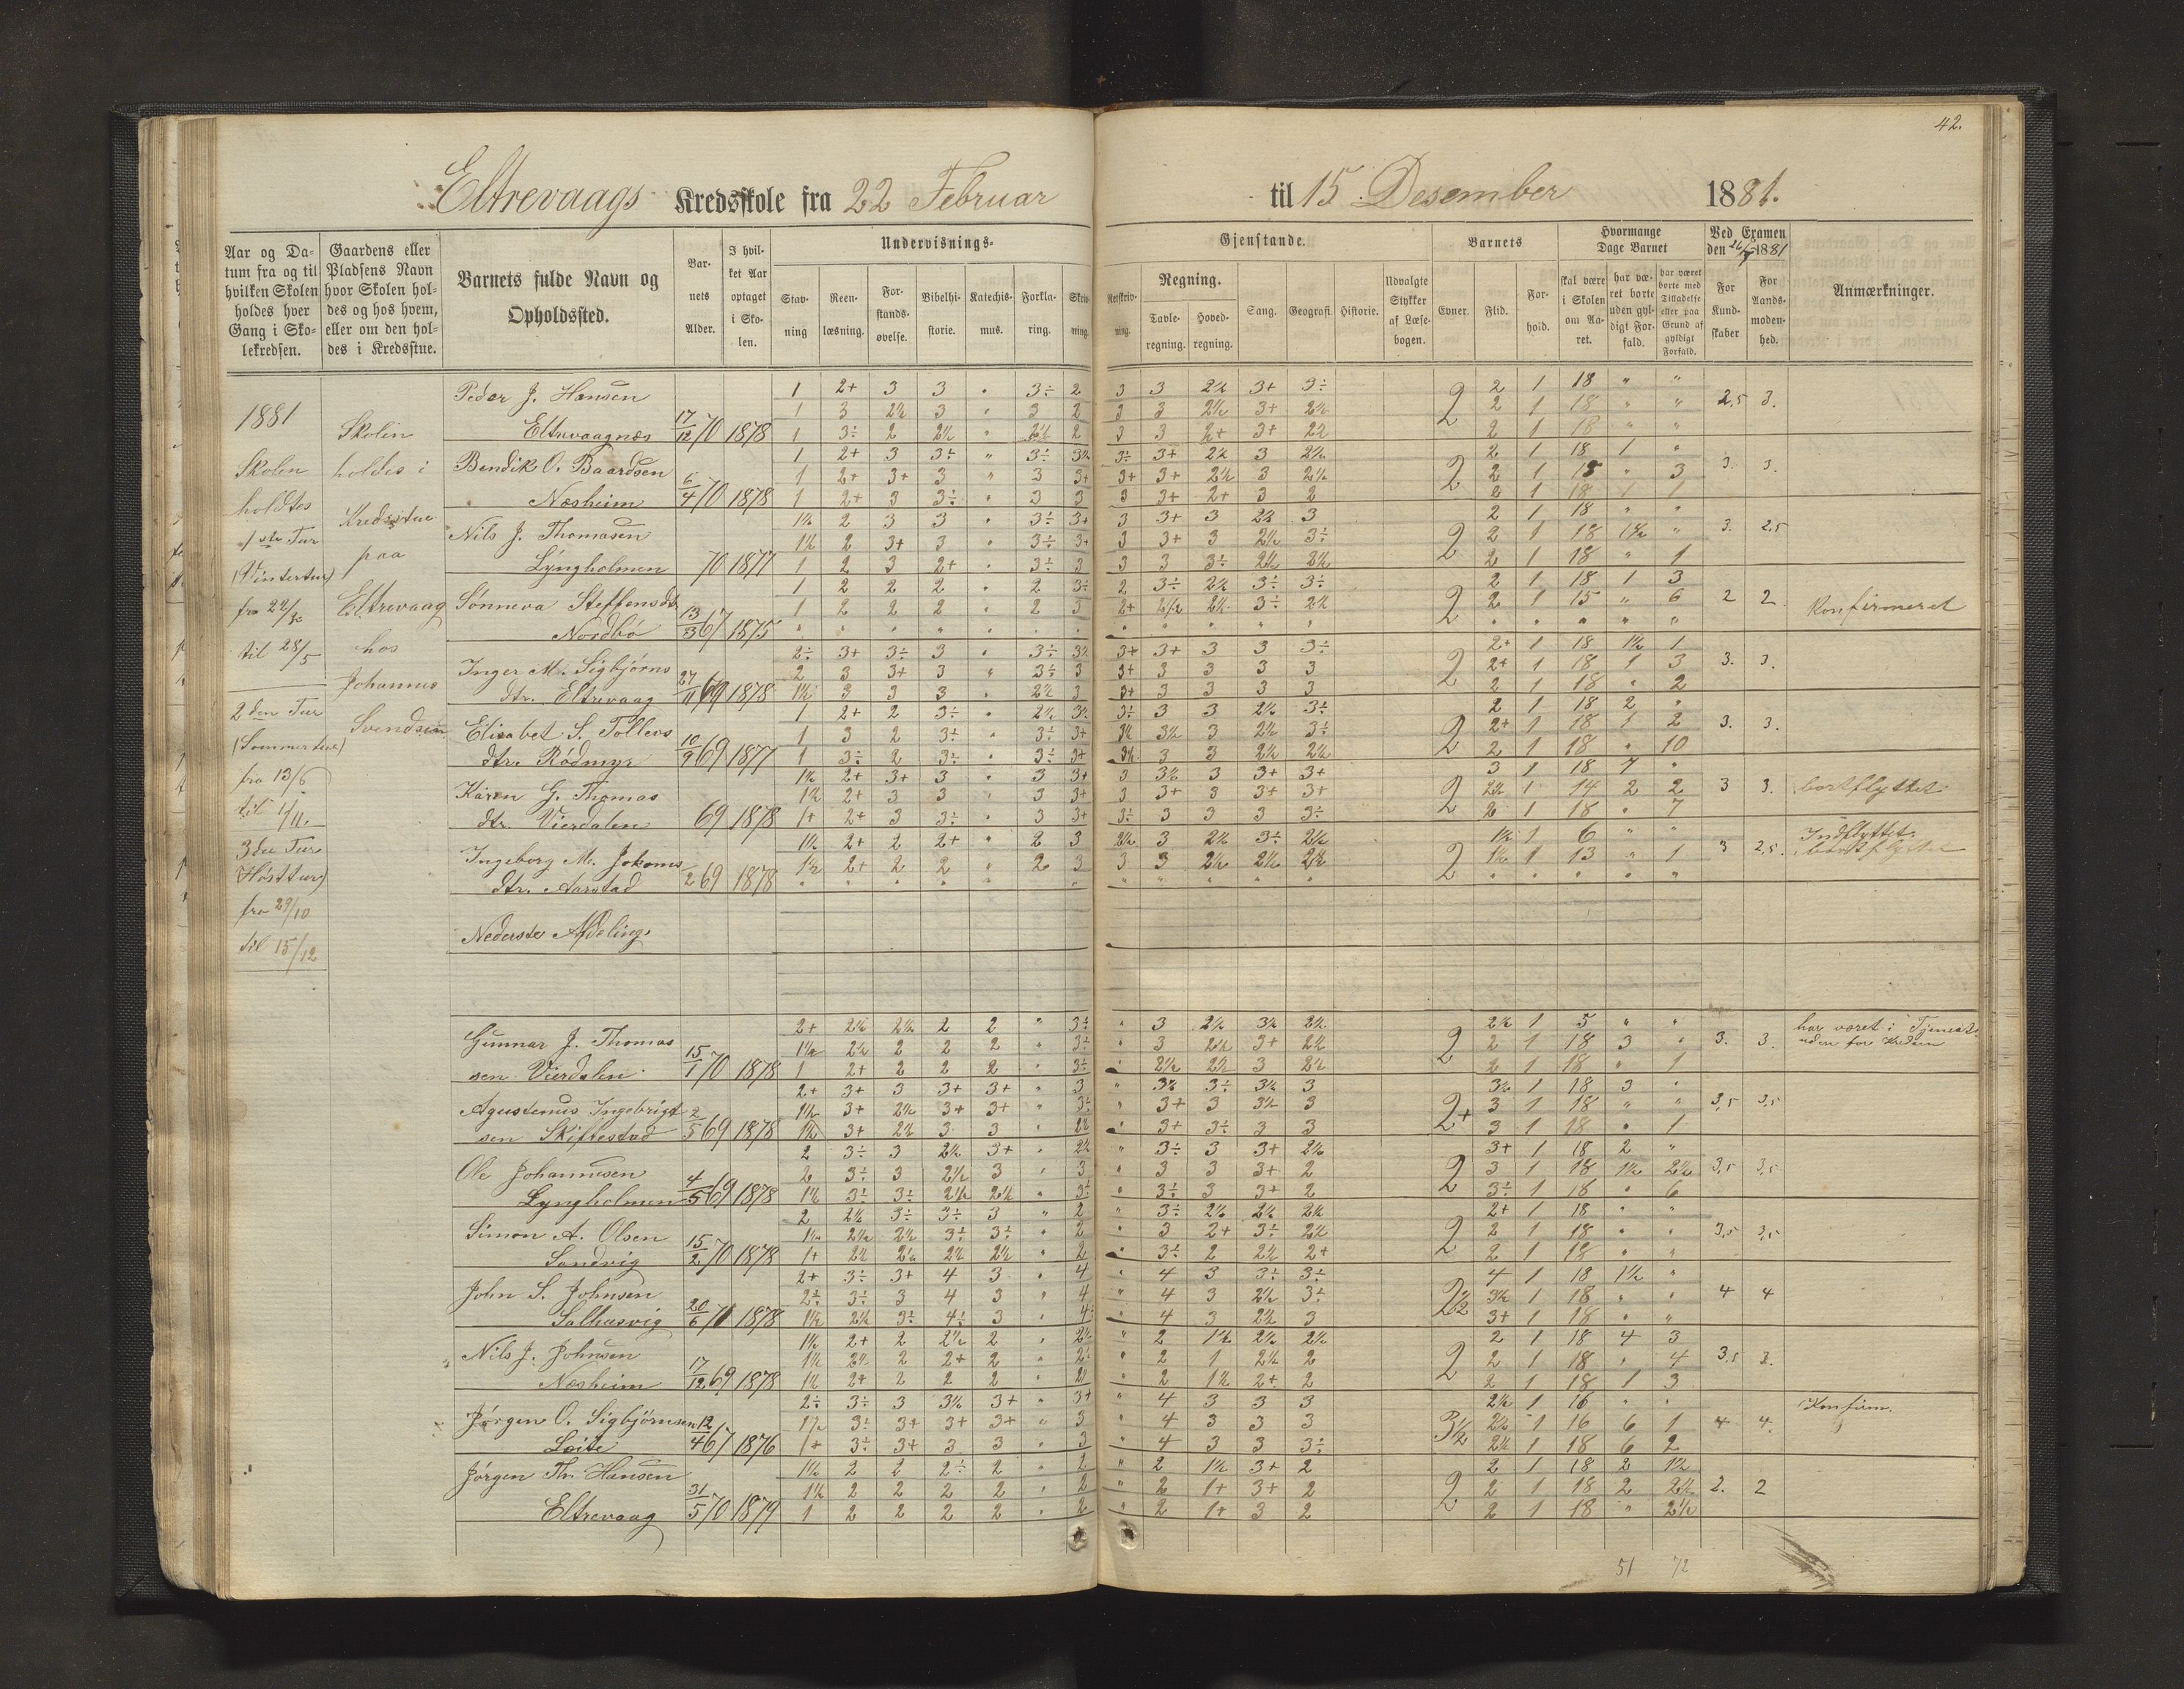 42.
Eltrevaags Kredsskole fra 22 Februar til 15 Desember 1881.
Aar og Da-
tum fra og til
hvilken Skolen
holdes hver
Gang i Sko-
lekredsen.
Gaardens eller
Pladsens Navn
hvor Skolen hol-
des og hos hvem,
eller om den hol-
des i Kredsstue.
Barnets fulde Navn og
Opholdssted.
Bar-
nets
Alder.
I hvil-
ket Aar
optaget
i Sko-
len.
Undervisnings-
Stav-
ning
Reen-
læsning.
For-
stands-
øvelse.
Bibelhi-
storie.
Katechis-
mus.
Forkla-
ring.
Skriv-
ning.
Gjenstande.
Retskriv-
ning.
Regning.
Tavle-
regning.
Hoved-
regning.
Sang.
Geografi.
Historie.
Udvalgte
Stykker
af Læse-
bogen.
Barnets
Evner.
Flid.
For-
hold.
Hvormange
Dage Barnet
skal være
i Skolen
om Aa-
ret.
har væ-
ret borte
uden gyl-
digt For-
fald.
har været
borte med
Tilladelse
eller paa
Grund af
gyldigt
Forfald.
Ved Examen
den 1881
For
Kund-
skaber
For
Aands-
moden-
hed.
Anmærkninger.
1881
Skolen
holdtes
1ste Tur
(Vintertur)
fra 22/2
til 28/5
2den Tur
(Sommertur)
fra 13/6
til 1/11.
3die Tur
(Høsttur)
fra 29/10
til 15/12
Skolen
holdes i
Kredsstue
paa
Eltrevaag
hos
Johannes
Svendsen
Peder J. Hansen
Eltrevaagnæs 17/12 70 1878
1 2+ 3 3 " 3÷ 2 3 3 2½ 3+ 3÷ 2 1 18 " "
1 3 2½ 3 " 3 2 3 3 2½ 3+ 2½ 2 2 1 18 " " 2,5 3.
1 3÷ 2 2½ " 2½ 2 3 3 2+ 3+ 2½ 2 1 18 " "
Bendik O. Baardsen
Næsheim 6/4 70 1878
1 2+ 3 3÷ " 3÷ 3½ 3÷ 3+ 2½ 3 2½ 2 1 18 1 "
1 2+ 3+ 3 " 3 3+ 3+ 3+ 2½ 3 2½ 2 2 1 18 " 3 3. 3.
1 2+ 3 3÷ " 3 3 3 3+ 2+ 3 2 2 1 18 1 1
Nils J. Thomasen
Lyngholmen 70 1877
1½ 2 3 3 " 3÷ 3+ 3 3+ 3 2½ 3 2 1 18 " "
1½ 2 3+ 3 " 3÷ 3+ 3 3+ 3 2½ 3÷ 2 2 1 18 1½ " 3. 2,5
1 2 3 2+ " 3÷ 3 3 3 3÷ 2½ 2½ 2 1 18 " 1
Sønneva Steffensdtr
Nordbø 13/3 67 1875
1 2 2 2 " 2 3÷ 2 3÷ 2½ 3÷ 3÷ 2 1 18 1 3
1 2 2 2 " 2 3 2+ 2½ 2½ 3÷ 2½ 2 2 1 15 " 6 2 2 Konfirmeret
Inger M. Sigbjørns
dtr. Eltrevaag 27/11 69 1878
2÷ 3+ 3÷ 3 " 3÷ 3½ 3+ 3+ 3 3 3÷ 2+ 1 18 1½ 1
2 3 3+ 3 " 3÷ 3 3+ 3 3 3 3 2 2+ 1 18 1 3 3. 3.
1½ 3 3 3 " 2½ 3 3+ 3 3 3 3 2 1 18 " 2
Elisabet S. Tollevs
dtr. Rødmyr 10/9 69 1877
1 2+ 2 3÷ " 2½ 3½ 3÷ 3 3 2½ 3÷ 2 1 18 2 "
1 3 2 3÷ " 3÷ 3+ 3½ 3½ 3 2½ 3÷ 2 2+ 1 18 1 2 3. 3.
1 3÷ 2 3÷ " 3÷ 3+ 3½ 3 3 2½ 2½ 2 1 18 " 10
Karen G. Thomas
dtr. Vierdalen 69 1878
1½ 2+ 3+ 3 " 3 3+ 3 3½ 3 3+ 3+ 3 1 18 7 "
1½ 2+ 3 3 " 3 3+ 3 3+ 3 3+ 3+ 2 2½ 1 14 2 2 3 3. bortflyttet
1+ 2+ 3 3÷ " 3 3+ 3÷ 3 3 3 3÷ 2 1 18 " 7
Ingeborg M. Johans
dtr. Aarstad 2 69 1878
1½ 2+ 2 2+ " 2 3 2½ 3 2½ 3÷ 2½ 1½ 1 6 " " Indflyttet
1½ 2+ 2 2 " 2 3 3 3 2½ 2½ 2½ 2 1½ 1 13 " 1 3 2,5. bortflyttet
Nederste Afdeling.
Gunnar J. Thomas
sen Vierdalen 15/1 70 1878
2+ 2½ 2½ 2 2 " 3÷ " 3 2½ 3½ 2½ 2½ 1 5 " " har været i Tjeneste
1½ 2½ 2 2 2 " 3÷ " 3 2½ 3+ 2½ 2 2 1 18 3 " 3. 3. uden for Kredsen
1 2+ 2 2 2 " 3÷ " 2½ 2½ 3 2½ 2 1 18 " 1
Agustenus Ingebrigt
sen Skiftestad 2/5 69 1878
2+ 3+ 3 3+ 3+ " 3 " 3½ 3÷ 3½ 3 3½ 1 18 3 "
1½ 3+ 2½ 3+ 3+ " 3÷ " 3+ 3 3½ 3 2+ 3 1 18 " " 3,5 3,5
1½ 3+ 2½ 3 3 " 2½ " 3+ 3÷ 3 3 3 1 18 " 1
Ole Johannesen
Lyngholmen 4/5 69 1878
2 3÷ 3 2½ 3+ " 2½ " 3÷ 3 3+ 2½ 3+ 1 18 2 "
2 3÷ 3 2½ 3 " 3 " 3 3 3+ 2 2 3 1 18 1½ 2½ 3,5 3,5
1½ 3÷ 3÷ 2½ 2½ " 3÷ " 3÷ 3 3+ 2 3÷ 1 18 " 6
Simon A. Olsen
Sandvig 15/2 70 1878
2 2½ 3÷ 3÷ 3 " 2 " 3÷ 2½ 2½ 2½ 2+ 1 18 " "
1½ 2½ 2½ 3÷ 3÷ " 2 " 3 2+ 3÷ 2½ 2 2 1 18 " " 3,5 3,5
1+ 2½ 2½ 2½ 2½ " 2 " 3÷ 2 2½ 2+ 2 1 18 " "
John S. Johnsen
Salhusvig 20/6 70 1878
2+ 3÷ 3+ 4 3 " 4 " 4 3 3÷ 3÷ 4 1 18 1½ "
2÷ 3÷ 3 4 3 " 4 " 4 3 2½ 3÷ 2½ 3½ 1 18 " " 4 4
1½ 2½ 3÷ 4÷ 3 " 4÷ " 4 3 2½ 3 3+ 1 18 " "
Nils J. Johnsen
Næsheim 17/12 69 1878
1½ 2+ 2 2½ 2 " 2½ " 2 1½ 2½ 2½ 2 1 18 4 3
1½ 2½ 2 2+ 2 " 2½ " 2 1 2½ 2 2 2 1 18 " 4 3,5 3.
1½ 2+ 2 2 2 " 2½ " 2 1½ 2+ 2 2 1 18 1 3
Jørgen O. Sigbjørnsen
Loite 12/4 67 1876
2÷ 3÷ 3 3½ 3+ " 3+ " 4 3 3 3 2½ 1 16 " " Konfirm.
1½ 3÷ 3+ 3+ 3+ " 3 " 4 3 3 3 3½ 2½ 1 16 6 1 4 4.
1+ 3÷ 3+ 3 3 " 3 " 4 3 3 3÷ 2½ 1 18 6 2
Jørgen Th. Hansen
Eltrevaag 31/5 70 1879
1½ 2 2 2÷ 2 " 2 " 2 1½ 3+ 2 2 1 18 2 1½
1½ 2 2 2 2 " 2 " 2 1+ 3+ 2 2 2 1 18 2 2½ 2. 2
1 2 2 2 2 " 2 " 2 1+ 3 2 2 1 18 " 2½
51 72